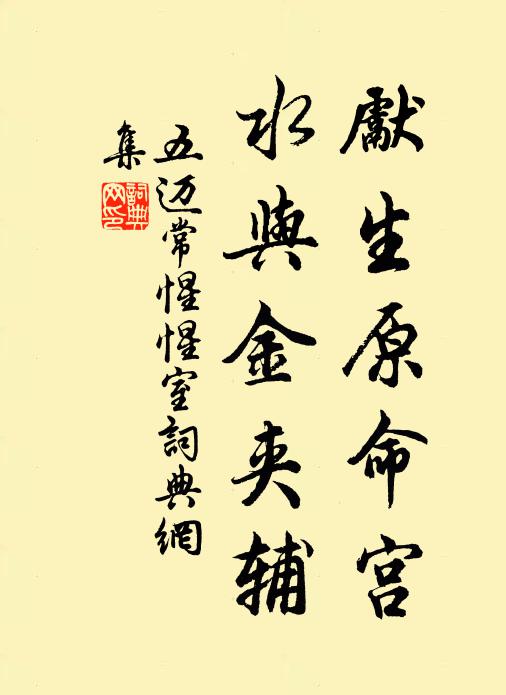 獻生原命宫
水與金夹辅
五迈常惺惺室詞典網
集
詞典
网印